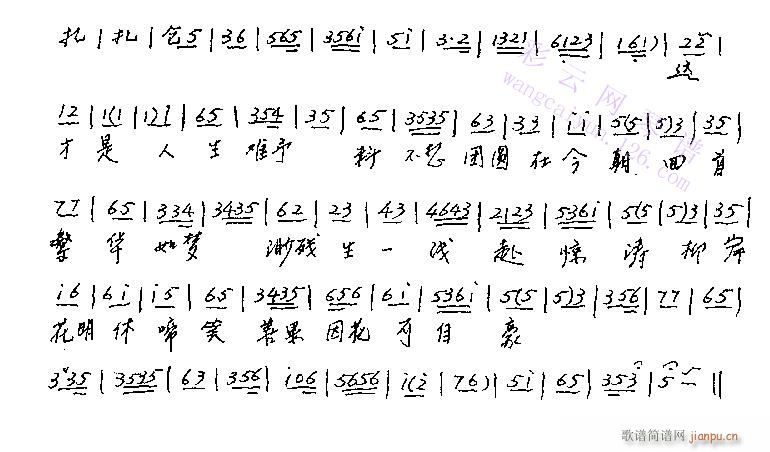 扎 | 扎 | 仓5 | 36 | 565 | 356i | 5i | 3·2 | 1321 | 6123 | 161) | 22 |
这
12 | 1(1 | 1)1 | 65 | 354 | 35 | 65 | 3535 | 63 | 33 | ii | 5(5 | 5)3 | 35 |
才是 人生难予 料不想团圆在今朝回首
77 | 65 | 334 | 3435 | 62 | 23 | 43 | 4643 | 2123 | 536i | 5(5 | 5)3 | 35 |
繁华如梦 渺残生一浅赴惊涛柳岸
i6 | 6i | i5 | 65 | 3435 | 656 | 6i | 536i | 5(5 | 5)3 | 356 | 77 | 65 |
花明休啼笑善果因花可自豪
3335 | 3535 | 63 | 356 | i06 | 5656 | i(2 | 76) | 5i | 65 | 353 | 5 ||
彩云网
wangcaiyun.126.com
歌谱简谱网 jianpu.cn